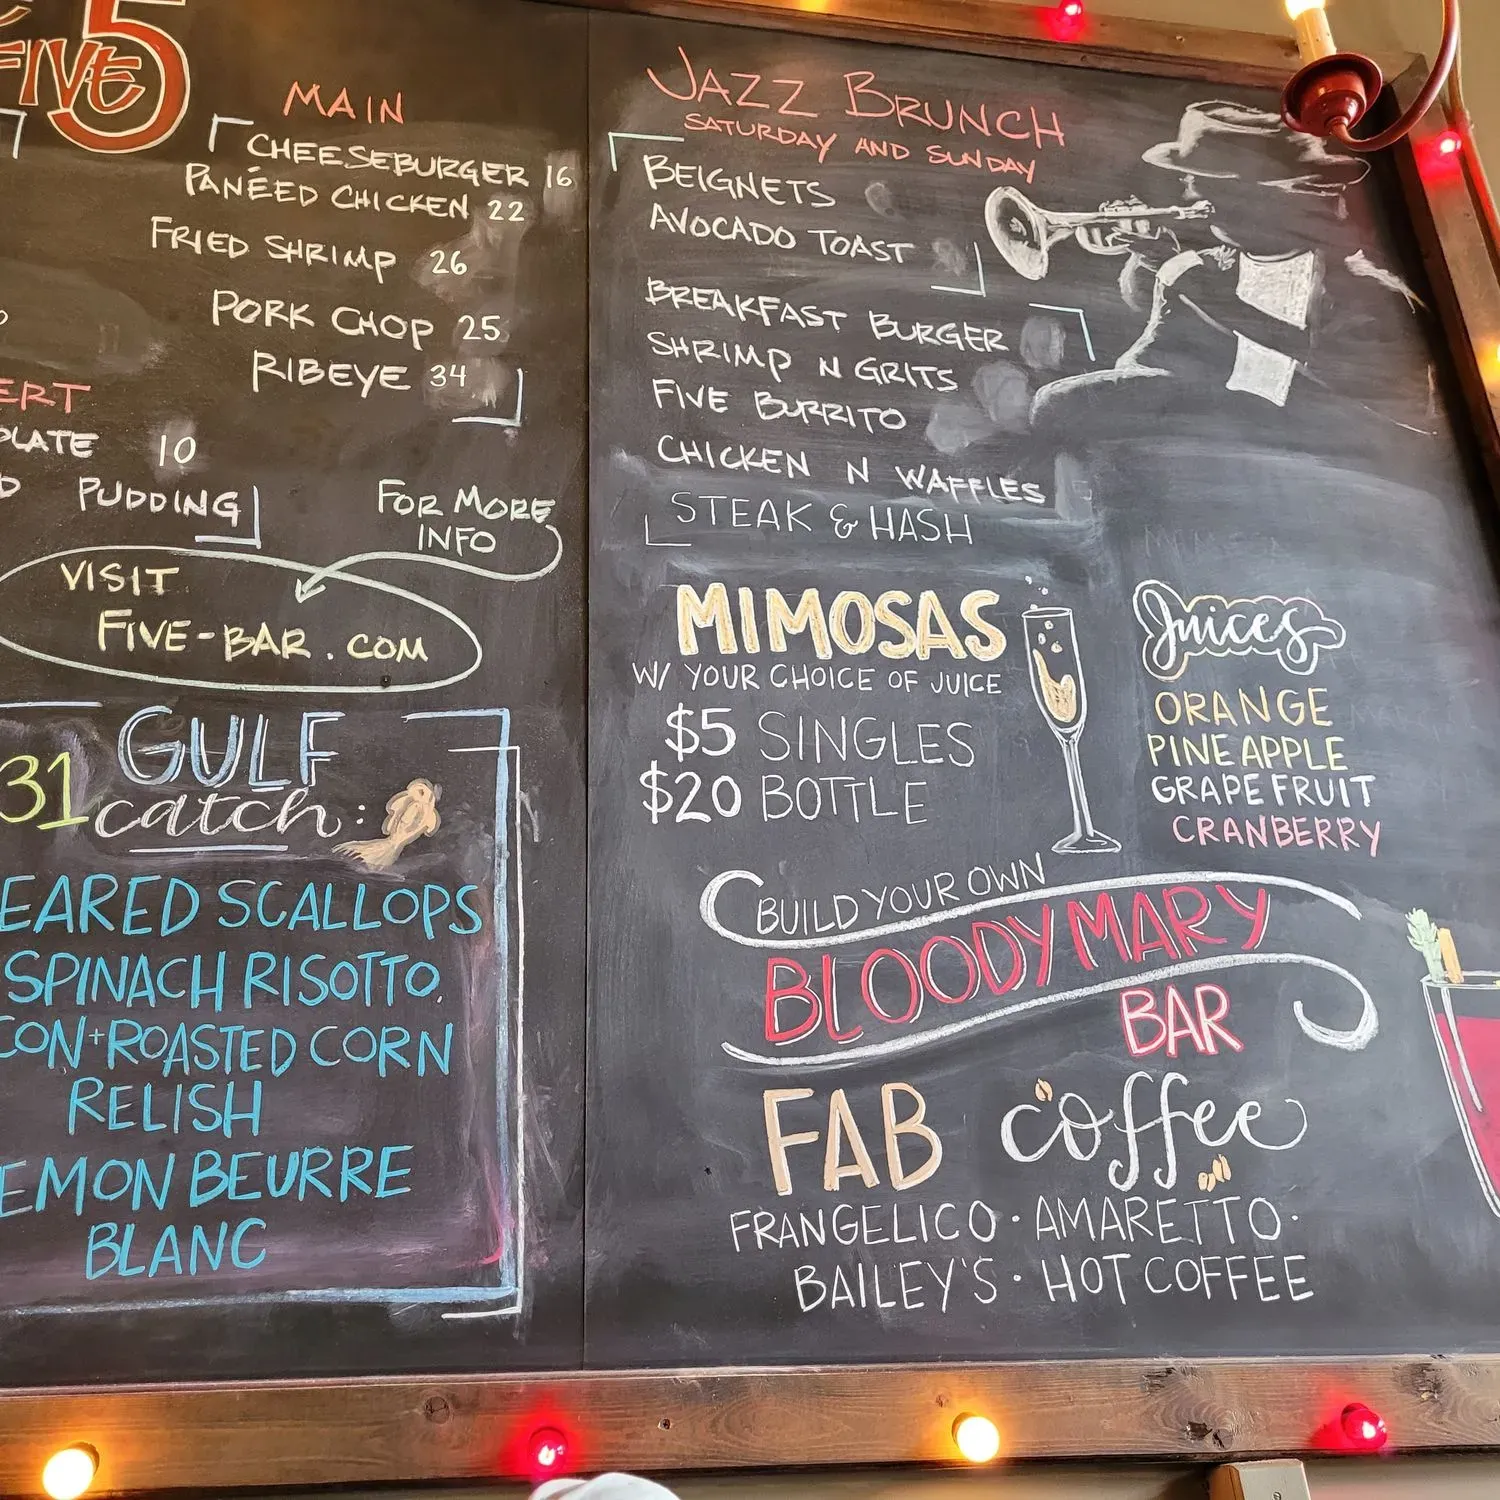 FIVE
5
MAIN
CHEESEBURGER 16
PANÉED CHICKEN 22
FRIED SHRIMP 26
PORK CHOP 25
RIBEYE 34
ERT
LATE 10
PUDDING
FOR MORE
INFO
VISIT
FIVE-BAR.COM
31 GULF
catch:
EARED SCALLOPS
SPINACH RISOTTO
CON+ROASTED CORN
RELISH
EMON BEURRE
BLANC
JAZZ BRUNCH
SATURDAY AND SUNDAY
BEIGNETS
AVOCADO TOAST
BREAKFAST BURGER
SHRIMP N GRITS
FIVE BURRITO
CHICKEN N WAFFLES
STEAK & HASH
MIMOSAS
W/ YOUR CHOICE OF JUICE
$5 SINGLES
$20 BOTTLE
Juices
ORANGE
PINEAPPLE
GRAPEFRUIT
CRANBERRY
BUILD YOUR OWN
BLOODY MARY
BAR
FAB coffee
FRANGELICO · AMARETTO ·
BAILEY'S · HOT COFFEE